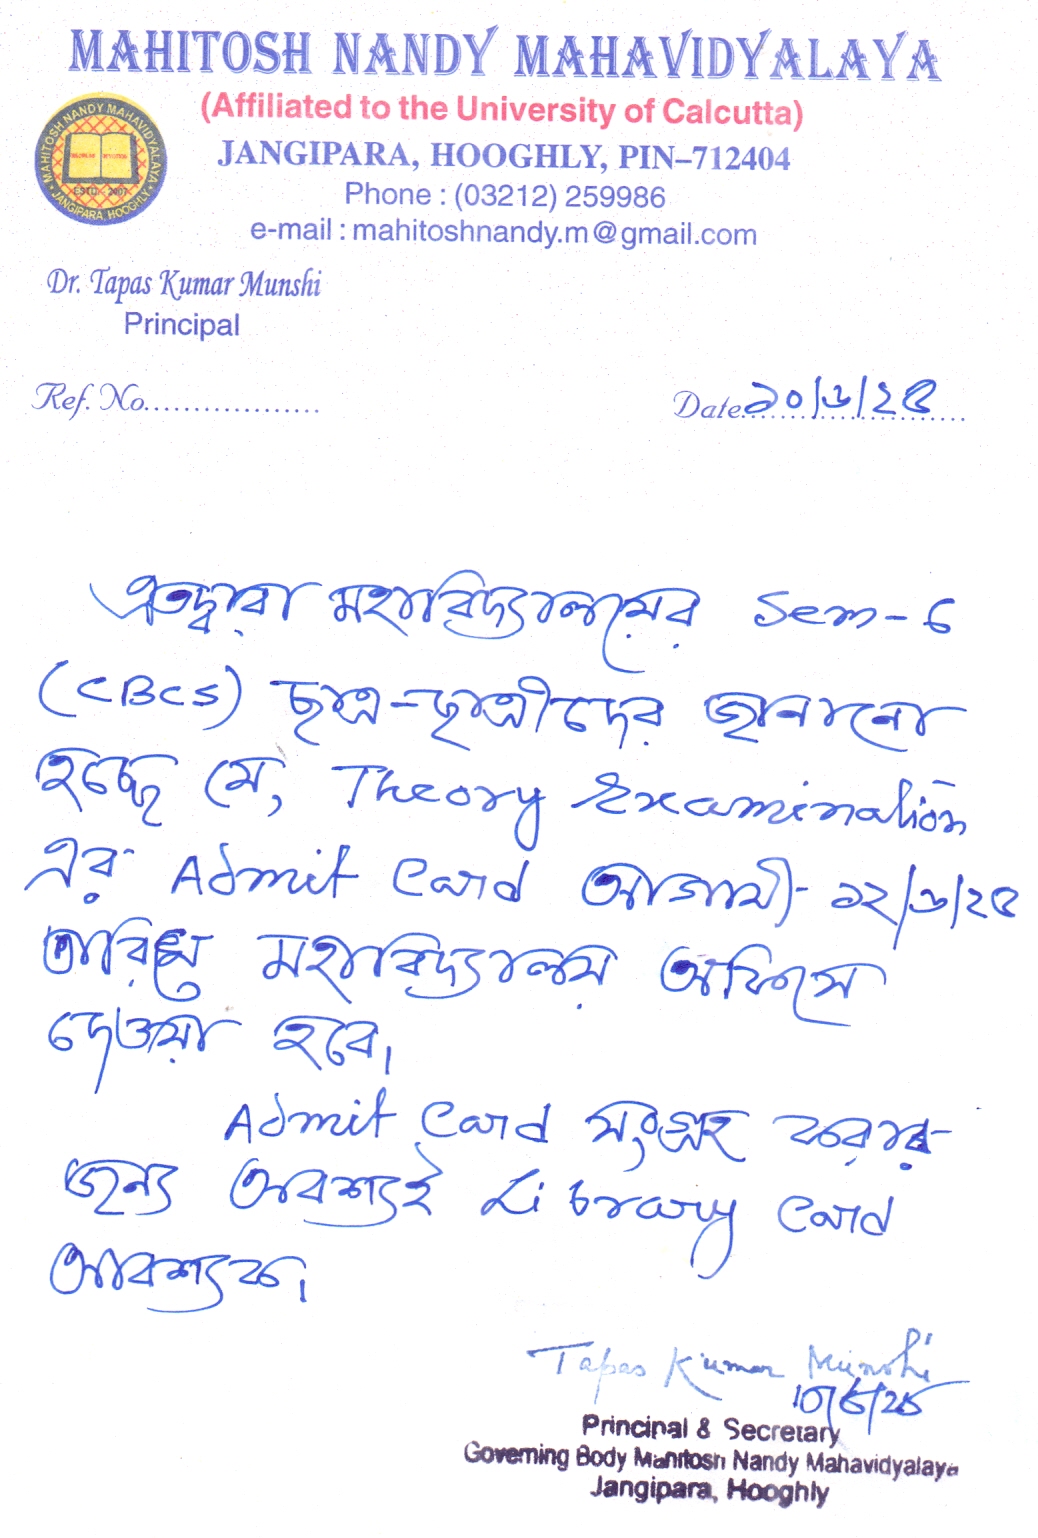 MAHITOSH NANDY MAHAVIDYALAYA
(Affiliated to the University of Calcutta)
JANGIPARA, HOOGHLY, PIN–712404
Phone : (03212) 259986
e-mail : mahitoshnandy.m@gmail.com
MAHITOSH NANDY MAHAVIDYALAYA
ESTD. - 2007
JANGIPARA, HOOGHLY
Dr. Tapas Kumar Munshi
Principal
Ref. No..................
Date ১০/৬/২৫
এতদ্বারা মহাবিদ্যালয়ের Sem-6
(CBCS) ছাত্র-ছাত্রীদের জানানো
হচ্ছে যে, Theory Examination
এর Admit Card আগামী- ১২/৬/২৫
তারিখে মহাবিদ্যালয় অফিসে
দেওয়া হবে।
Admit Card সংগ্রহ করার
জন্য অবশ্যই Library Card
আবশ্যক।
Tapas Kumar Munshi
10/6/25
Principal & Secretary
Governing Body Mahitosh Nandy Mahavidyalaya
Jangipara, Hooghly